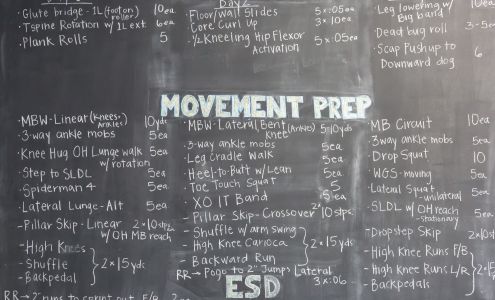 ·Glute bridge - 1L (footon roller) 10ea
·Tspine Rotation w/ 1L ext. 6ea
·Plank Rolls 5
·Floor/Wall Slides 5x:05ea
·Core Curl Up 3x10ea
·½ Kneeling Hip Flexor Activation 5x:05ea
·Leg lowering w/ Big band 10ea
·Dead bug roll
·Scap Pushup to Downward dog 6
MOVEMENT PREP
·MBW-Linear (Knees, Ankles) 10yds
·3-way ankle mobs 5ea
·Knee Hug OH Lunge walk w/ rotation 5ea
·Step to SLDL 5ea
·Spiderman 4 5ea
·Lateral Lunge-Alt 5ea
·Pillar Skip-Linear w/ OH MB reach 2x10stps
-High Knees
-Shuffle
-Backpedal
2x15yds
RR→ 2" runs to sprint out F/B
·MBW-Lateral Bent Knee (Ankles) 5-10yds
·3-way ankle mobs 5ea
·Leg Cradle Walk 5ea
·Heel-to-Butt w/ Lean 5ea
·Toe Touch Squat 5
·XO IT Band 5ea
·Pillar Skip-Crossover 2x10stps.
-Shuffle w/ arm swing
-High Knee Carioca
-Backward Run
2x15yds
RR→ Pogo to 2" Jumps Lateral 3x:06
ESD
·MB Circuit 10ea
·3way ankle mobs 5ea
·Drop Squat 10
·WGS-moving 5ea
·Lateral Squat -unilateral 5ea
·SLDL w/ OH reach -stationary 5ea
·Dropstep Skip
-High Knee Runs F/B
-High Knee Runs L/R
-Backpedals